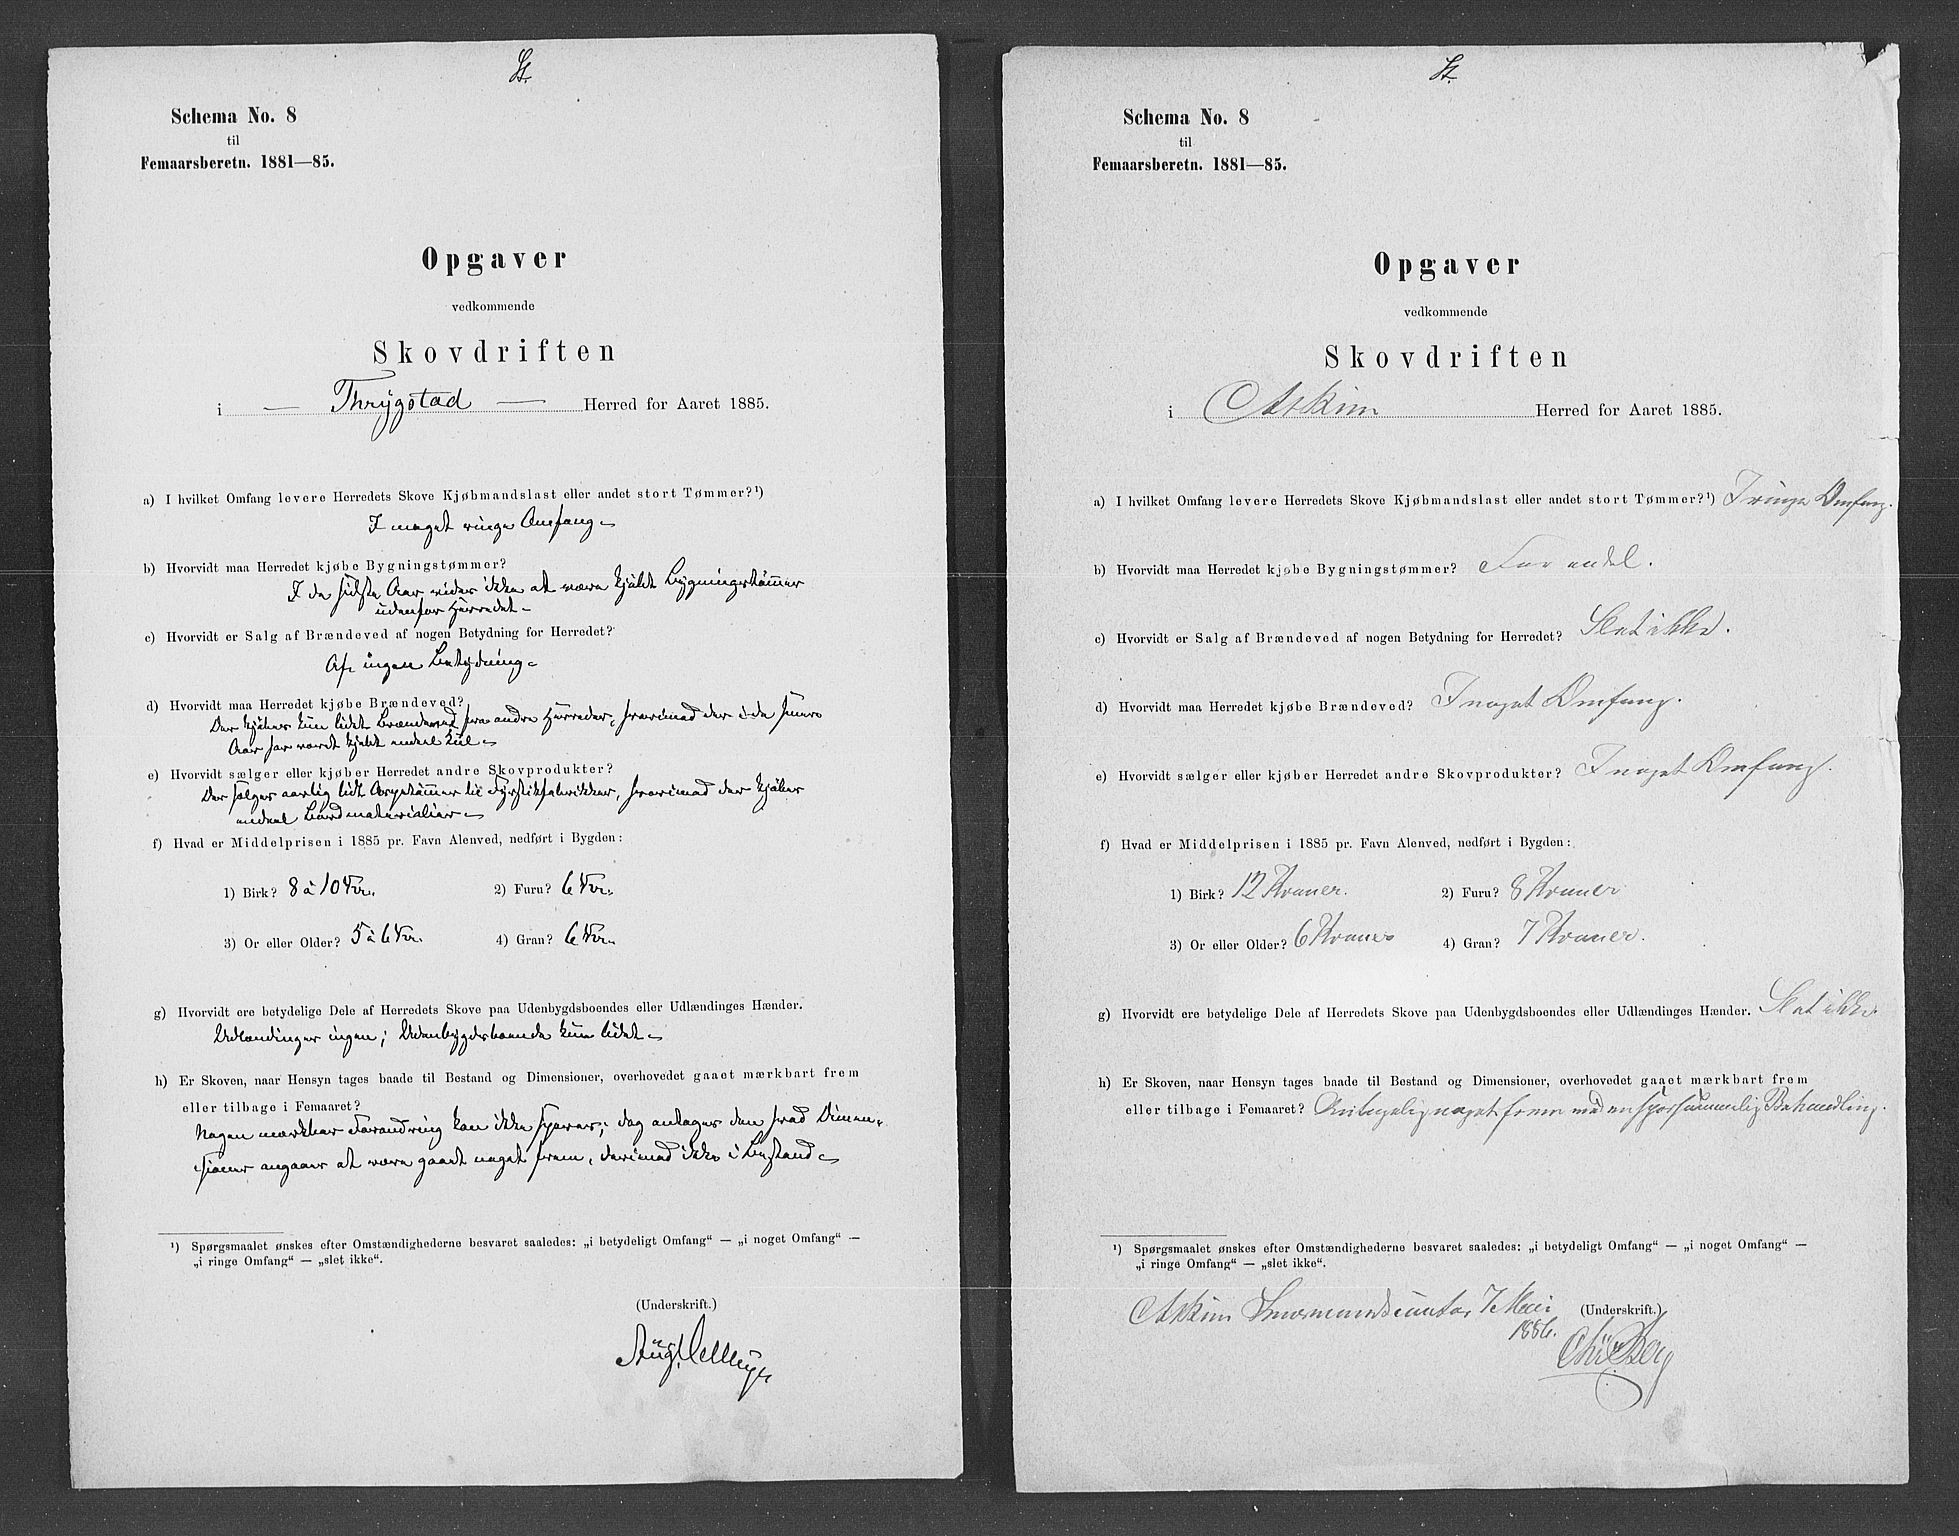 St.
Schema No. 8
til
Femaarsberetn. 1881—85.
Opgaver
vedkommende
Skovdriften
i — Thrygstad — Herred for Aaret 1885.
a) I hvilket Omfang levere Herredets Skove Kjøbmandslast eller andet stort Tømmer?¹)
I meget ringe Omfang
b) Hvorvidt maa Herredet kjøbe Bygningstømmer?
I de sidste Aar vides ikke at være kjøbt Bygningstømmer
udenfor Herredet
c) Hvorvidt er Salg af Brændeved af nogen Betydning for Herredet?
Af ingen Betydning
d) Hvorvidt maa Herredet kjøbe Brændeved?
Der kjøbes kun lidet Brændeved fra andre Herreder, hvorimod der i de senere
Aar har været kjøbt endeel Kul
e) Hvorvidt sælger eller kjøber Herredet andre Skovprodukter?
Der sælges aarlig lidt Aspetømmer til Fyrstikfabrikker, hvorimod der kjøbes
endeel Bordmaterialier
f) Hvad er Middelprisen i 1885 pr. Favn Alenved, nedført i Bygden:
1) Birk? 8 à 10 Kr. 2) Furu? 6 Kr.
3) Or eller Older? 5 à 6 Kr. 4) Gran? 6 Kr.
g) Hvorvidt ere betydelige Dele af Herredets Skove paa Udenbygdsboendes eller Udlændinges Hænder.
Udlændinger ingen; Udenbygdsboende kun lidet
h) Er Skoven, naar Hensyn tages baade til Bestand og Dimensioner, overhovedet gaaet mærkbart frem
eller tilbage i Femaaret?
Nogen mærkbar Forandring kan ikke spores; dog antages den hvad Dimen-
sioner angaaer at være gaaet noget frem, derimod ikke i Bestand
¹) Spørgsmaalet ønskes efter Omstændighederne besvaret saaledes: „i betydeligt Omfang“ — „i noget Omfang“ —
„i ringe Omfang“ — „slet ikke“.
(Underskrift.)
Aug.
St.
Schema No. 8
til
Femaarsberetn. 1881—85.
Opgaver
vedkommende
Skovdriften
i Askim Herred for Aaret 1885.
a) I hvilket Omfang levere Herredets Skove Kjøbmandslast eller andet stort Tømmer?¹) I ringe Omfang.
b) Hvorvidt maa Herredet kjøbe Bygningstømmer? For endel.
c) Hvorvidt er Salg af Brændeved af nogen Betydning for Herredet? Slet ikke.
d) Hvorvidt maa Herredet kjøbe Brændeved? I noget Omfang.
e) Hvorvidt sælger eller kjøber Herredet andre Skovprodukter? I noget Omfang.
f) Hvad er Middelprisen i 1885 pr. Favn Alenved, nedført i Bygden:
1) Birk? 12 Kroner. 2) Furu? 8 Kroner
3) Or eller Older? 6 Kroner 4) Gran? 7 Kroner.
g) Hvorvidt ere betydelige Dele af Herredets Skove paa Udenbygdsboendes eller Udlændinges Hænder. Slet ikke.
h) Er Skoven, naar Hensyn tages baade til Bestand og Dimensioner, overhovedet gaaet mærkbart frem
eller tilbage i Femaaret? Antagelig noget frem med en sparsommelig Behandling.
¹) Spørgsmaalet ønskes efter Omstændighederne besvaret saaledes: „i betydeligt Omfang“ — „i noget Omfang“ —
„i ringe Omfang“ — „slet ikke“.
Askim Lensmandscontor 7 Mai (Underskrift.)
1886.
Chr. Berg